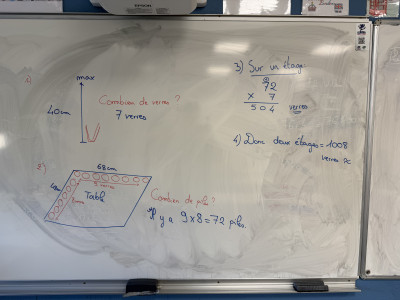 EPSON
1)
max
40cm
Combien de verres ?
7 verres
2)
68cm
9 verres
Table
8cm
Combien de piles ?
Il y a 9x8=72 piles.
3) Sur un étage
72
x 7
504 verres
4) Donc deux étages = 1008
verres